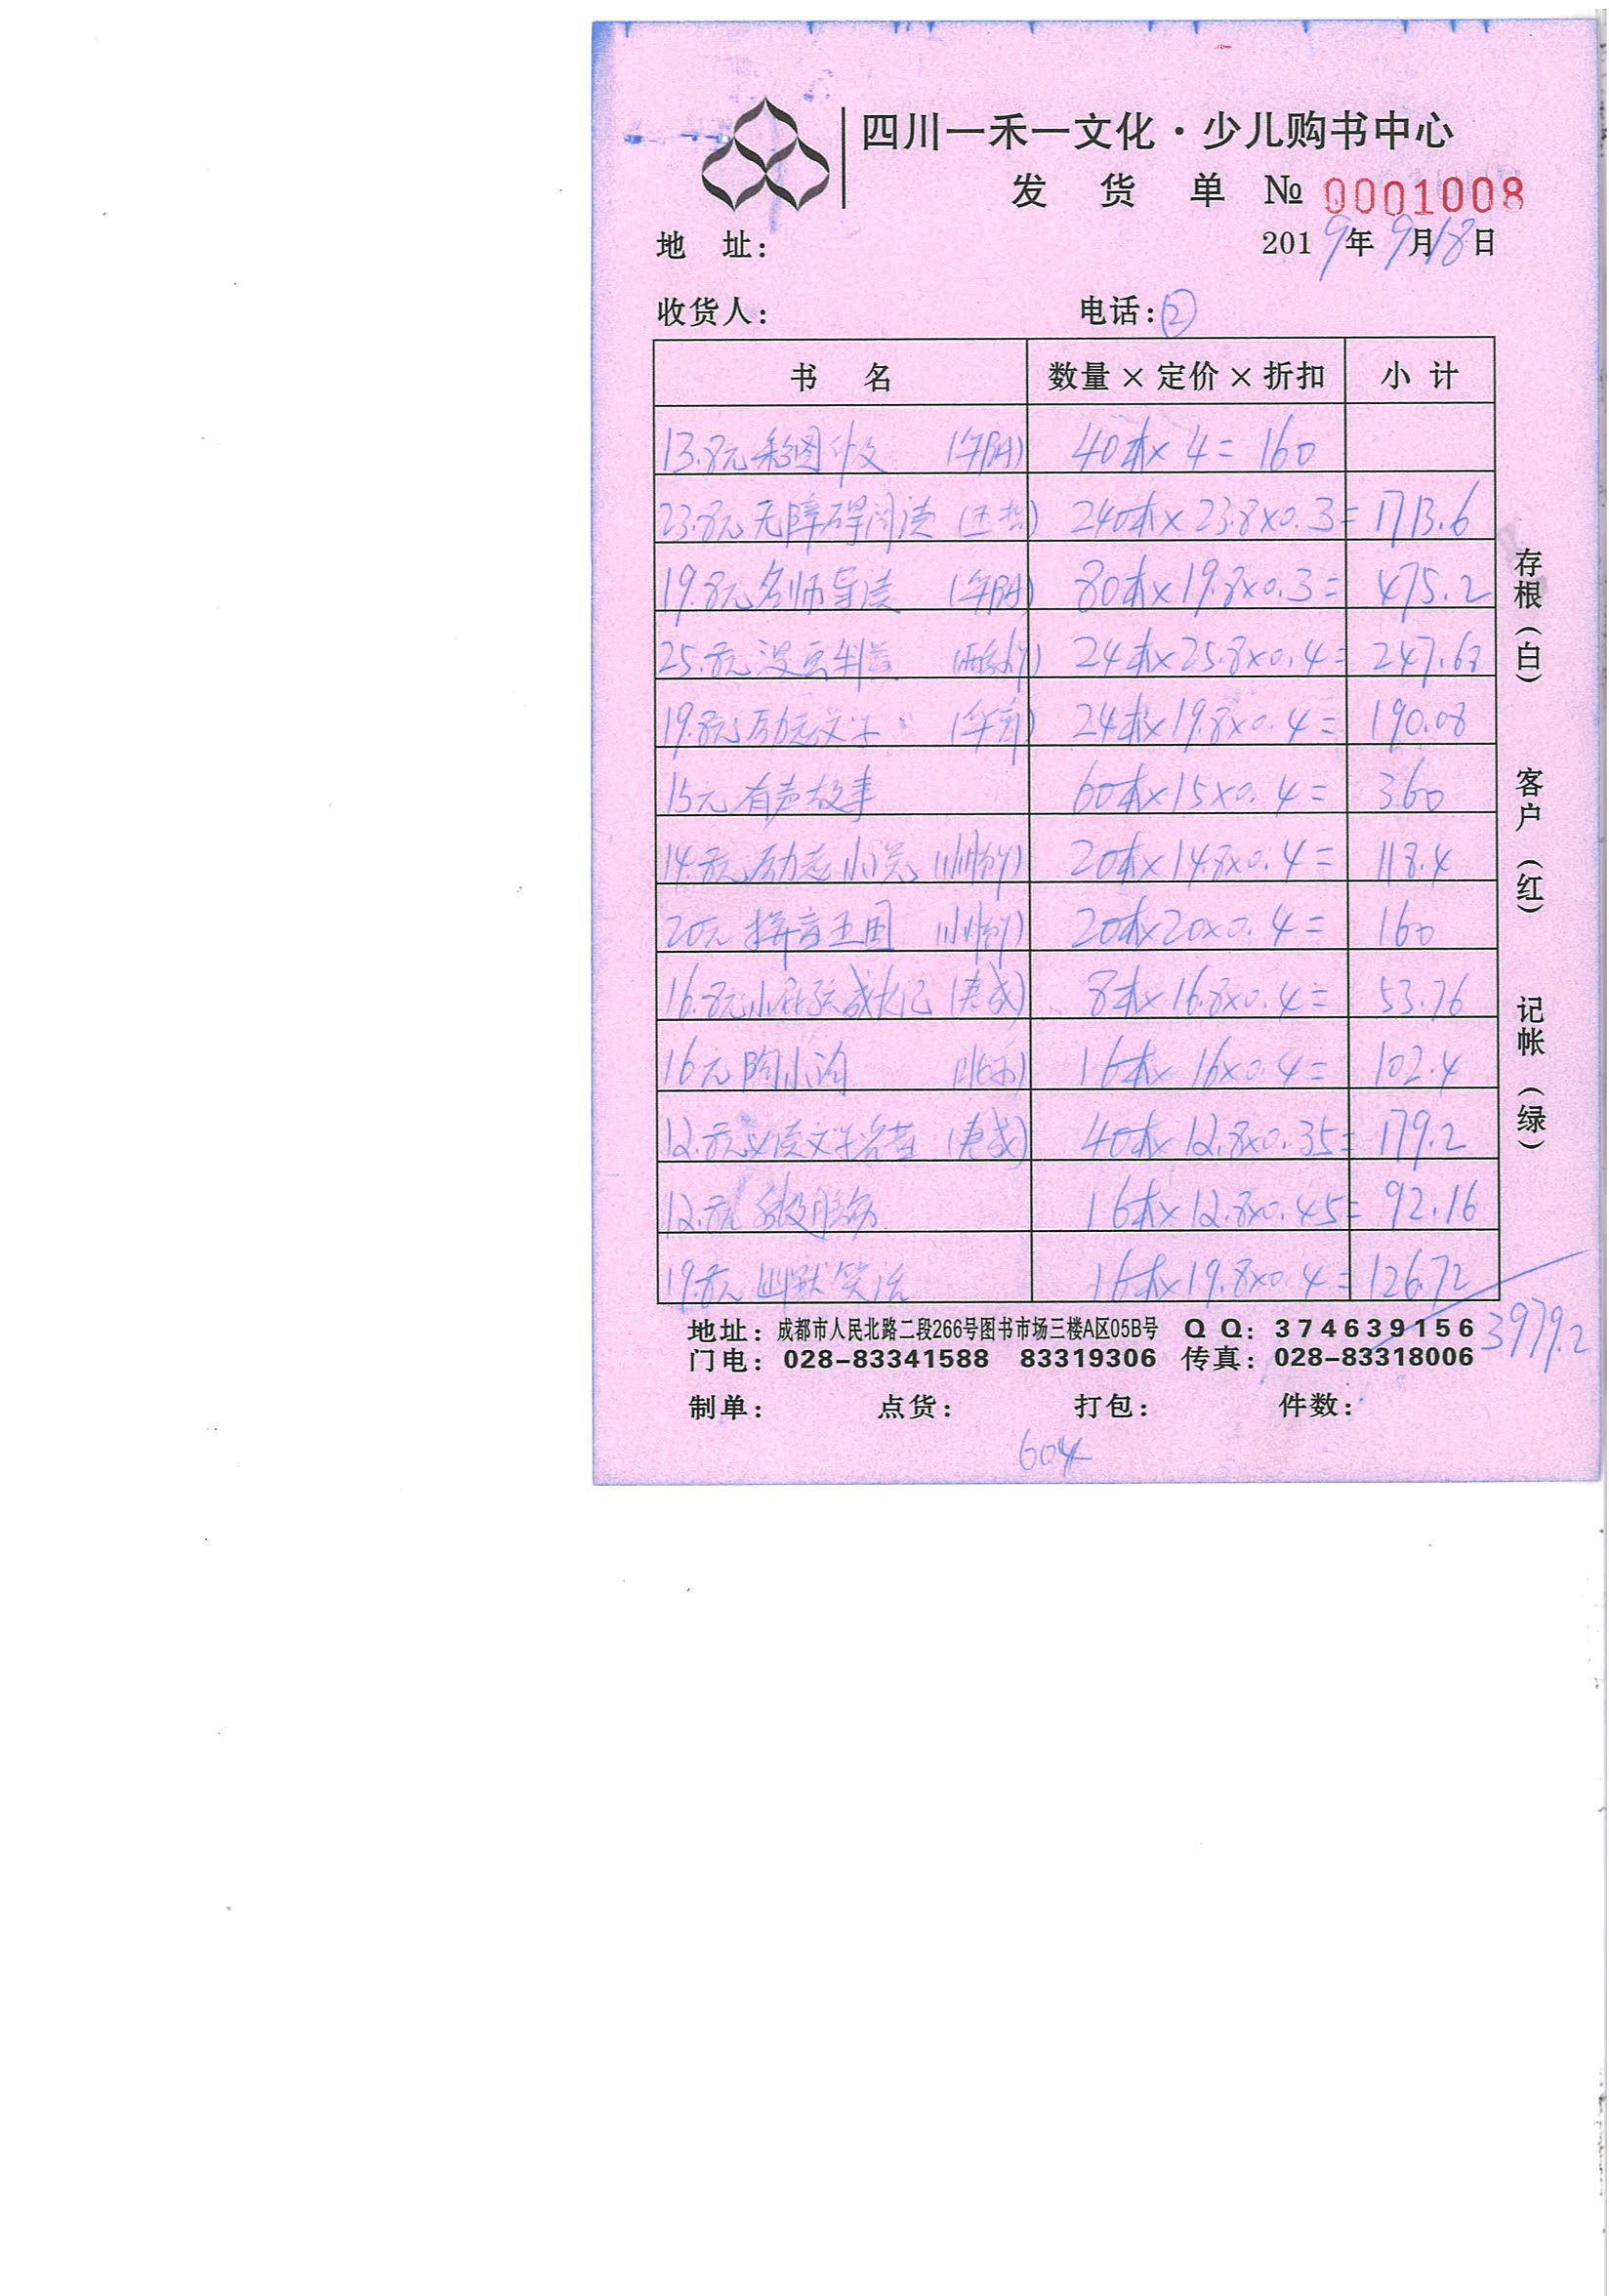 四川一禾一文化·少儿购书中心
发 货 单 № 0001008
地 址: 2019年9月18日
收货人: 电话:②
书 名 数量×定价×折扣 小 计
13.8元彩图 40本×4=160
23.8元无障碍阅读 240本×23.8×0.3= 1713.6
19.8元名师导读 80本×19.8×0.3= 475.2
25.8元 24本×25.8×0.4= 247.68
19.8元励志文学 24本×19.8×0.4= 190.08
15元有声故事 60本×15×0.4= 360
14.8元励志小说 20本×14.8×0.4= 118.4
20元 拼音王国 20本×20×0.4= 160
16.8元小屁孩成长记 8本×16.8×0.4= 53.76
16元 陶小淘 16本×16×0.4= 102.4
12.8元必读文学名著 40本×12.8×0.35= 179.2
12.8元 16本×12.8×0.45= 92.16
19.8元 幽默笑话 16本×19.8×0.4= 126.72
3979.2
存根(白) 客户(红) 记帐(绿)
地址:成都市人民北路二段266号图书市场三楼A区05B号 QQ:374639156
门电:028-83341588 83319306 传真:028-83318006
制单: 点货: 打包: 件数:
604